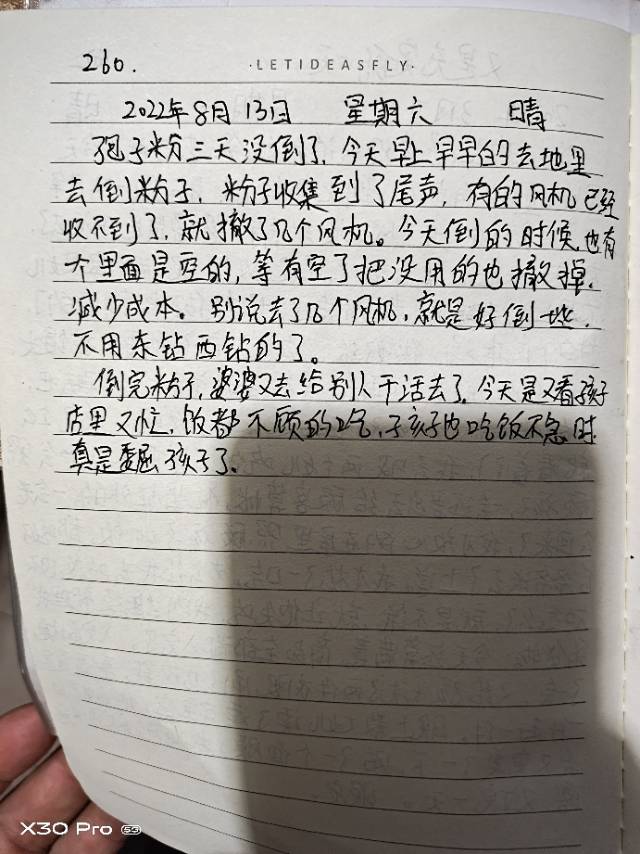 260.
·LETIDEASFLY·
2022年8月13日 星期六 晴
孢子粉三天没倒了,今天早上早早的去地里
去倒粉子,粉子收集到了尾声,有的风机已经
收不到了,就撤了几个风机。今天倒的时候,也有
个里面是空的,等有空了把没用的也撤掉,
减少成本。别说去了几个风机,就是好倒些,
不用东钻西钻的了。
倒完粉子,婆婆又去给别人干活去了,今天是又看孩子
店里又忙,饭都不顾的吃,孩子也吃饭不急时
真是委屈孩子了。
X30 Pro